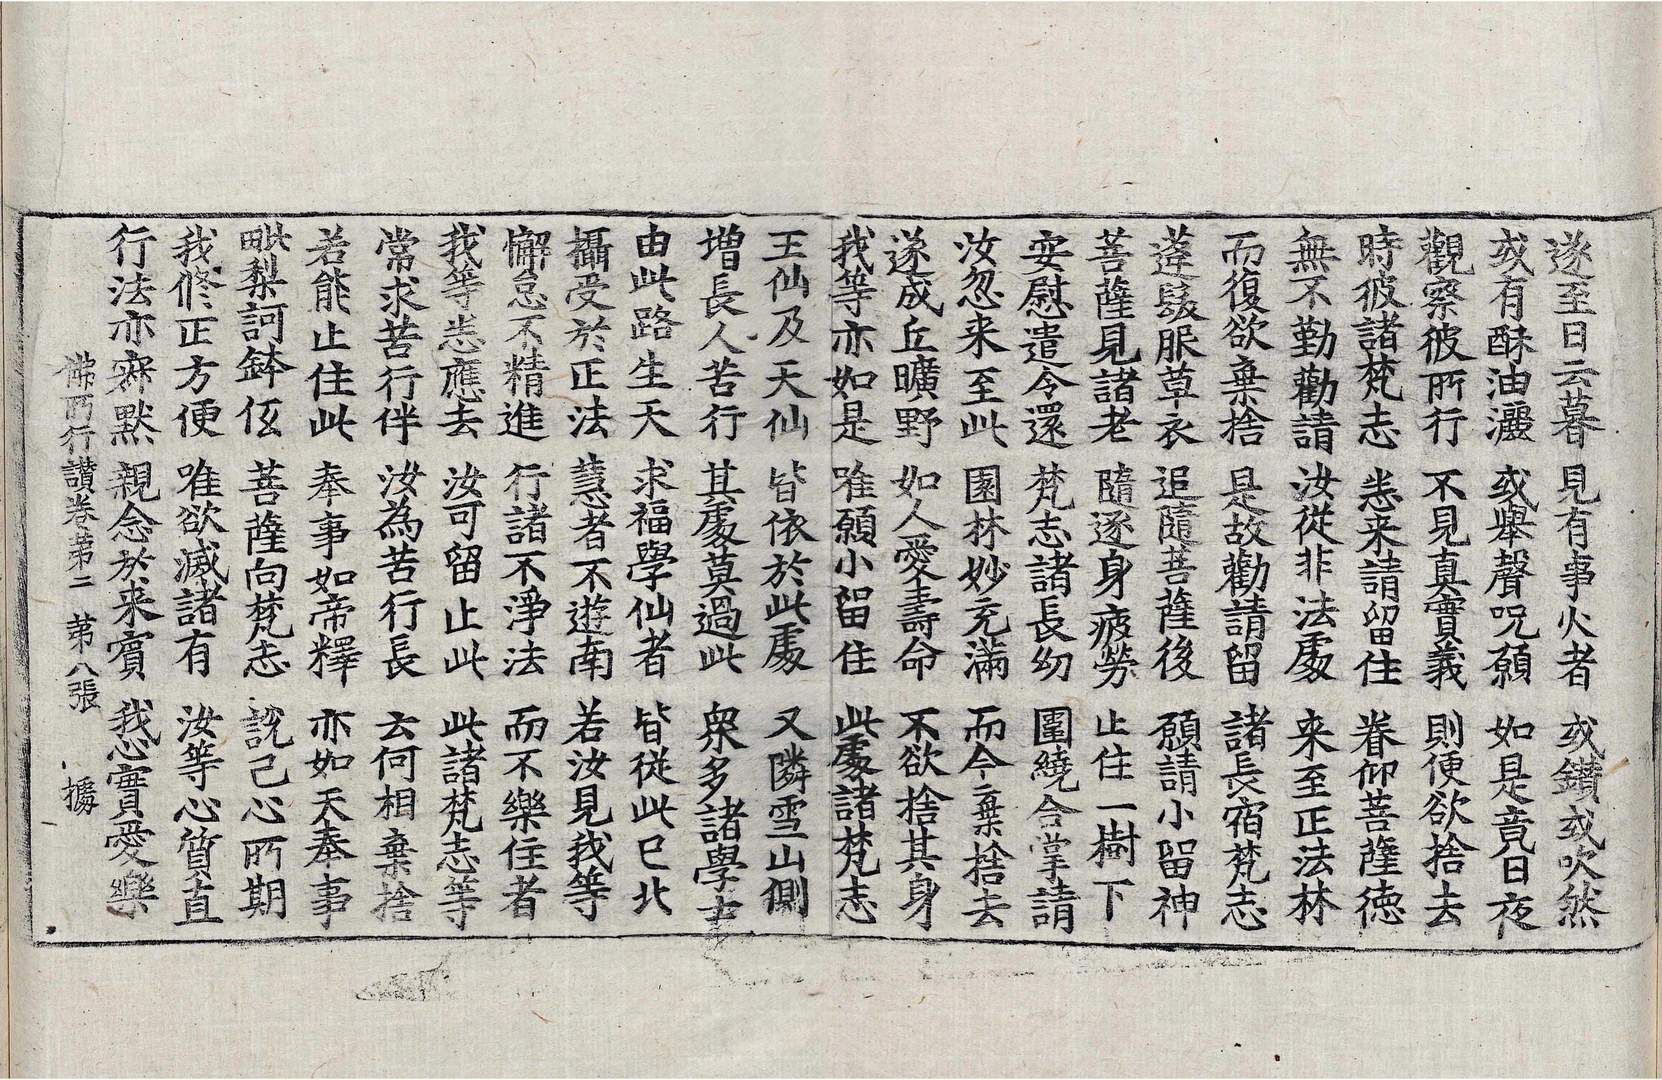 遂至日云暮 見有事火者 或鑚或吹然
或有酥油灑 或舉聲呪願 如是竟日夜
觀察彼所行 不見真實義 則便欲捨去
時彼諸梵志 悉来請留住 眷仰菩薩徳
無不勤勸請 汝從非法處 来至正法林
而復欲棄捨 是故勸請留 諸長宿梵志
蓬髮服草衣 追隨菩薩後 願請小留神
菩薩見諸老 隨逐身疲勞 止住一樹下
安慰遣令還 梵志諸長幼 圍繞合掌請
汝忽来至此 園林妙充滿 而今棄捨去
遂成丘曠野 如人愛壽命 不欲捨其身
我等亦如是 唯願小留住 此處諸梵志
王仙及天仙 皆依於此處 又隣雪山側
增長人苦行 其處莫過此 衆多諸學士
由此路生天 求福學仙者 皆從此已北
攝受於正法 慧者不遊南 若汝見我等
懈怠不精進 行諸不淨法 而不樂住者
我等悉應去 汝可留止此 此諸梵志等
常求苦行伴 汝為苦行長 云何相棄捨
若能止住此 奉事如帝釋 亦如天奉事
毗梨訶鉢低 菩薩向梵志 說己心所期
我修正方便 唯欲滅諸有 汝等心質直
行法亦寂默 親念於来賓 我心實愛樂
佛所行讚卷第二 第八張 據